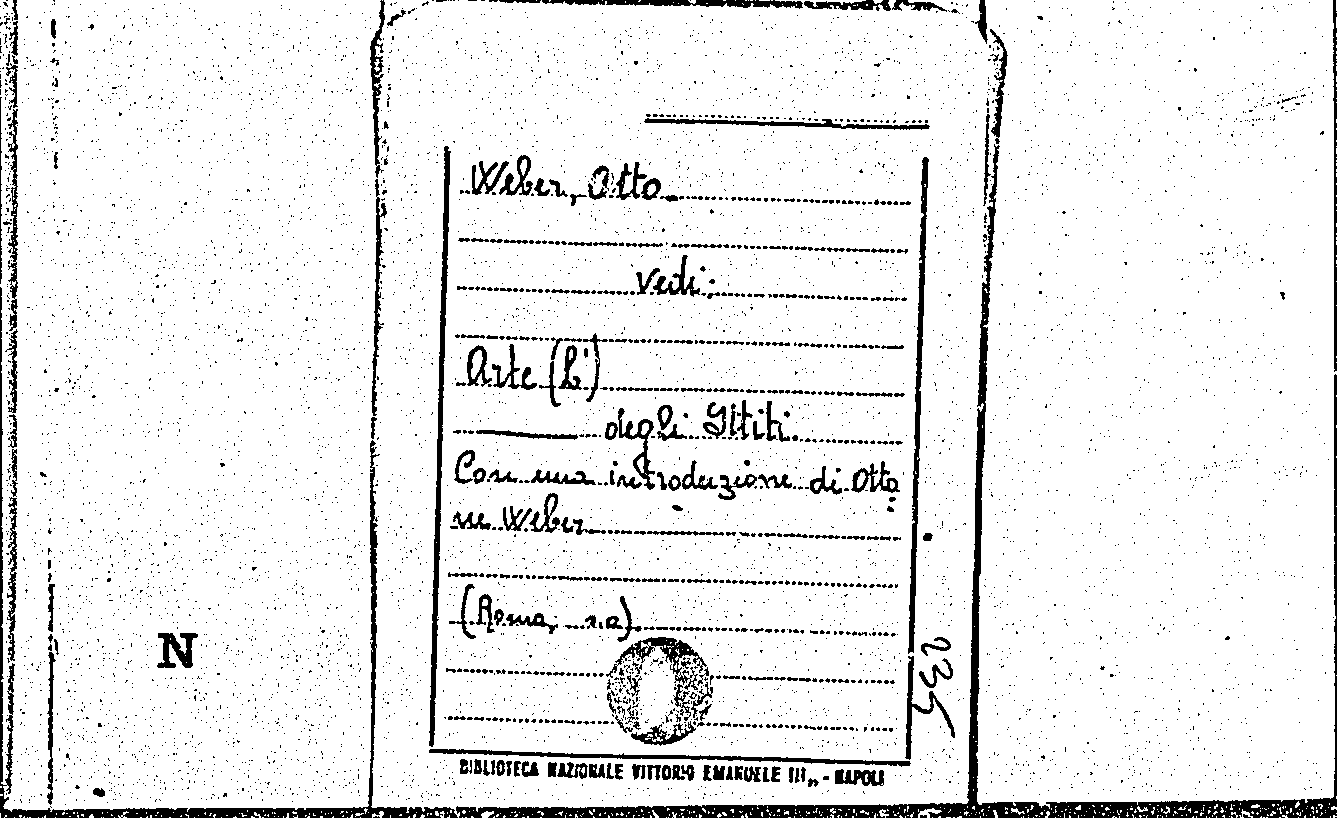 Weber, Otto.
Vedi:
Arte (L')
degli Ittiti.
Con una introduzione di Otto
ne Weber.
(Roma, s.a.).
N
235
BIBLIOTECA NAZIONALE VITTORIO EMANUELE III„ - NAPOLI